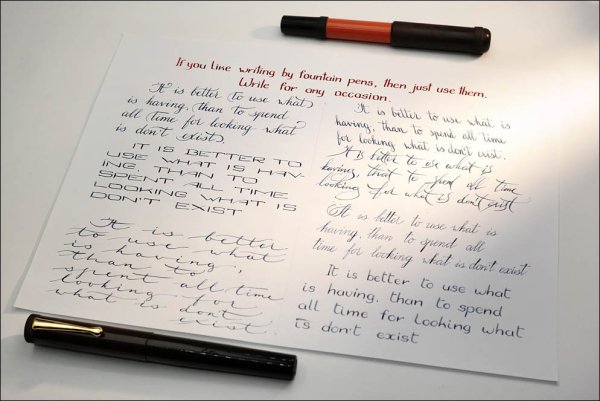 If you like writing by fountain pens, then just use them.
Write for any occasion.
It is better to use what
is having, than to spend
all time for looking what
is don't exist.
IT IS BETTER TO
USE WHAT IS HAV-
ING, THAN TO
SPENT ALL TIME
LOOKING WHAT IS
DON'T EXIST
It is better
to use what
is having,
than to
spent all time
looking for
what is don't
exist.
It is better to use what is
having, than to spend all time
for looking what is don't exist.
It is better to use what is
having, that to spend all time
looking for what is don't exist
It is better to use what is
having, than to spend all
time for looking what is don't exist
It is better to use what
is having, than to spend
all time for looking what
is don't exist